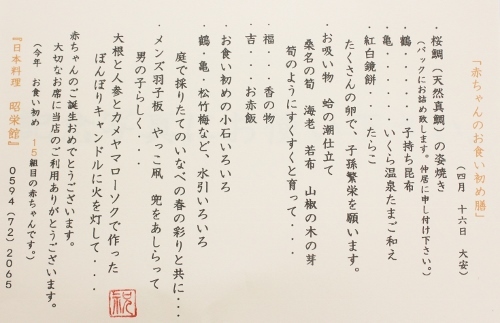 「赤ちゃんのお食い初め膳」
（四月 十六日 大安）
・桜鯛（天然真鯛）の姿焼き
（パックにお詰め致します。仲居に申し付け下さい。）
鶴・・・・・子持ち昆布
亀・・・・・いくら温泉たまご和え
・紅白鏡餅・・・・たらこ
たくさんの卵で、子孫繁栄を願います。
・お吸い物 蛤の潮仕立て
桑名の筍 海老 若布 山椒の木の芽
筍のようにすくすくと育って・・・・
・福・・・香の物
・吉・・・お赤飯
・お食い初めの小石いろいろ
・鶴・亀・松竹梅など、水引いろいろ
庭で採りたてのいなべの春の彩りと共に・・・
・メンズ羽子板 やっこ凧 兜をあしらって
男の子らしく・・
大根と人参とカメヤマローソクで作った
ぼんぼりキャンドルに火を灯して・・・・
赤ちゃんのご誕生おめでとうございます。
大切なお席に当店のご利用ありがとうございます。
（今年 お食い初め 15組目の赤ちゃんです。）
『日本料理 昭栄館』
0594（72）2065